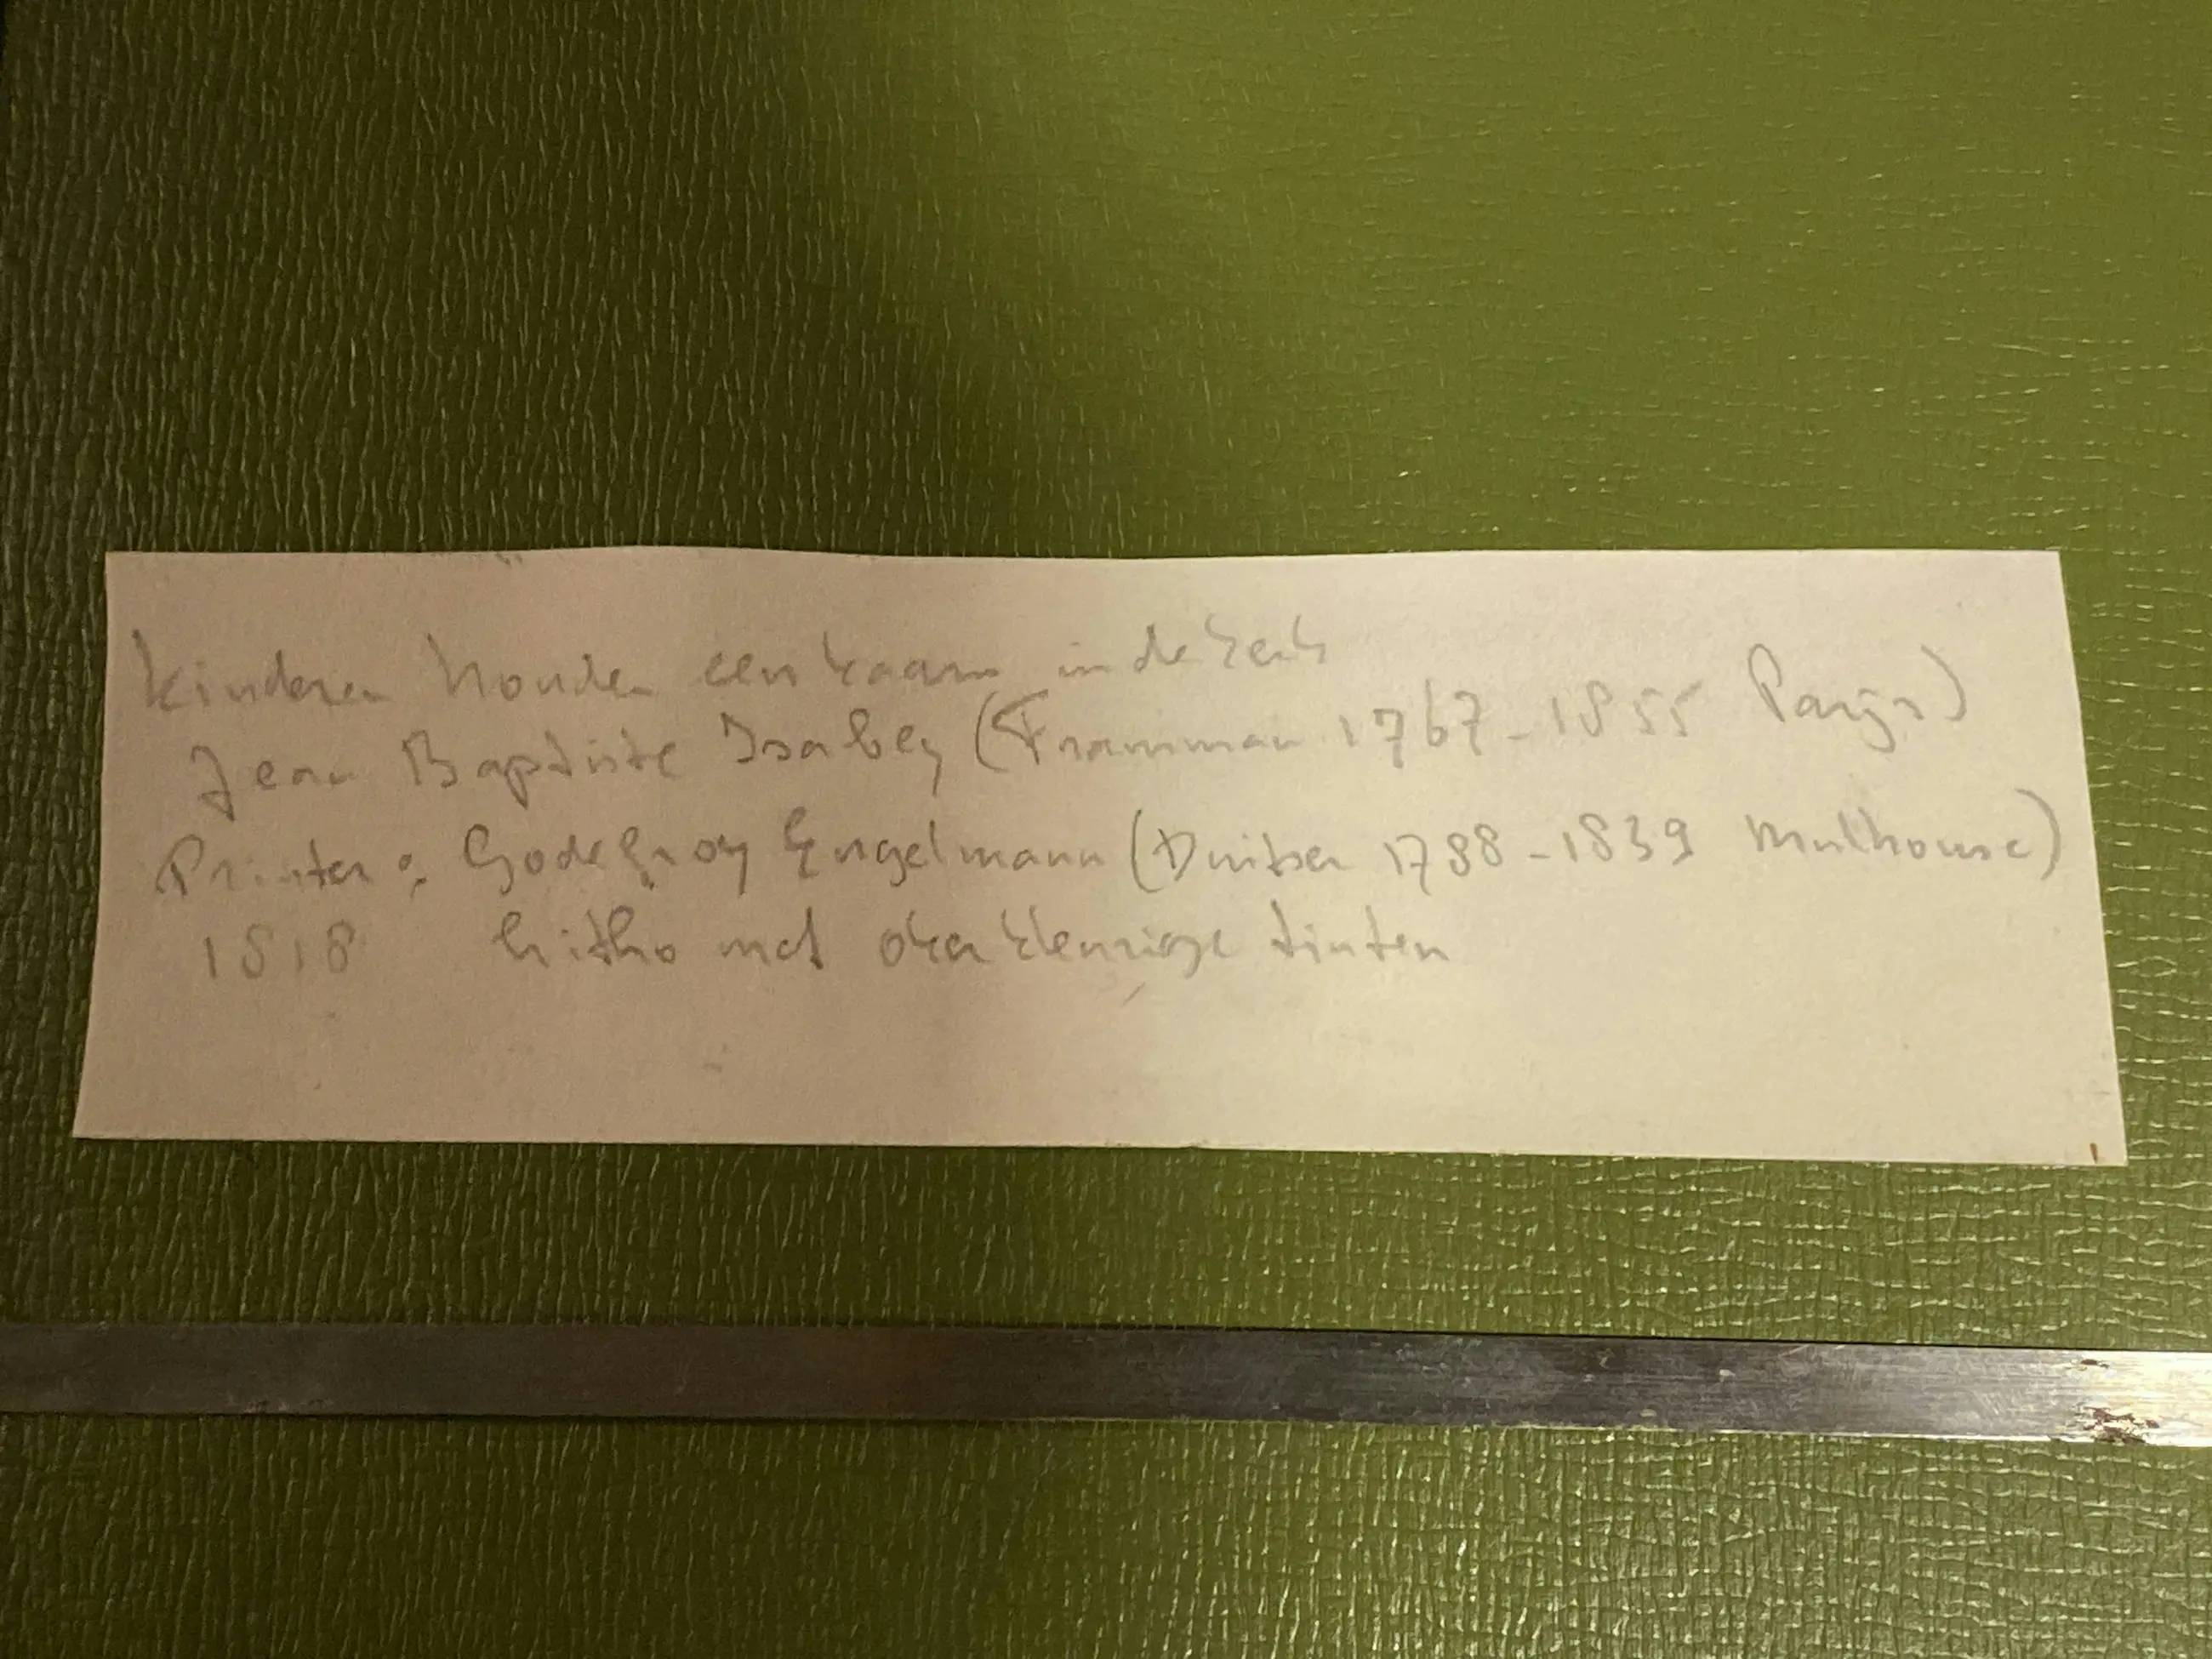 Kinderen houden een kaars in de kerk
Jean Baptiste Isabey (Fransman 1767-1855 Parijs)
Printer: Godefroy Engelmann (Duitser 1788-1839 Mulhouse)
1818 Litho met okerkleurige tinten